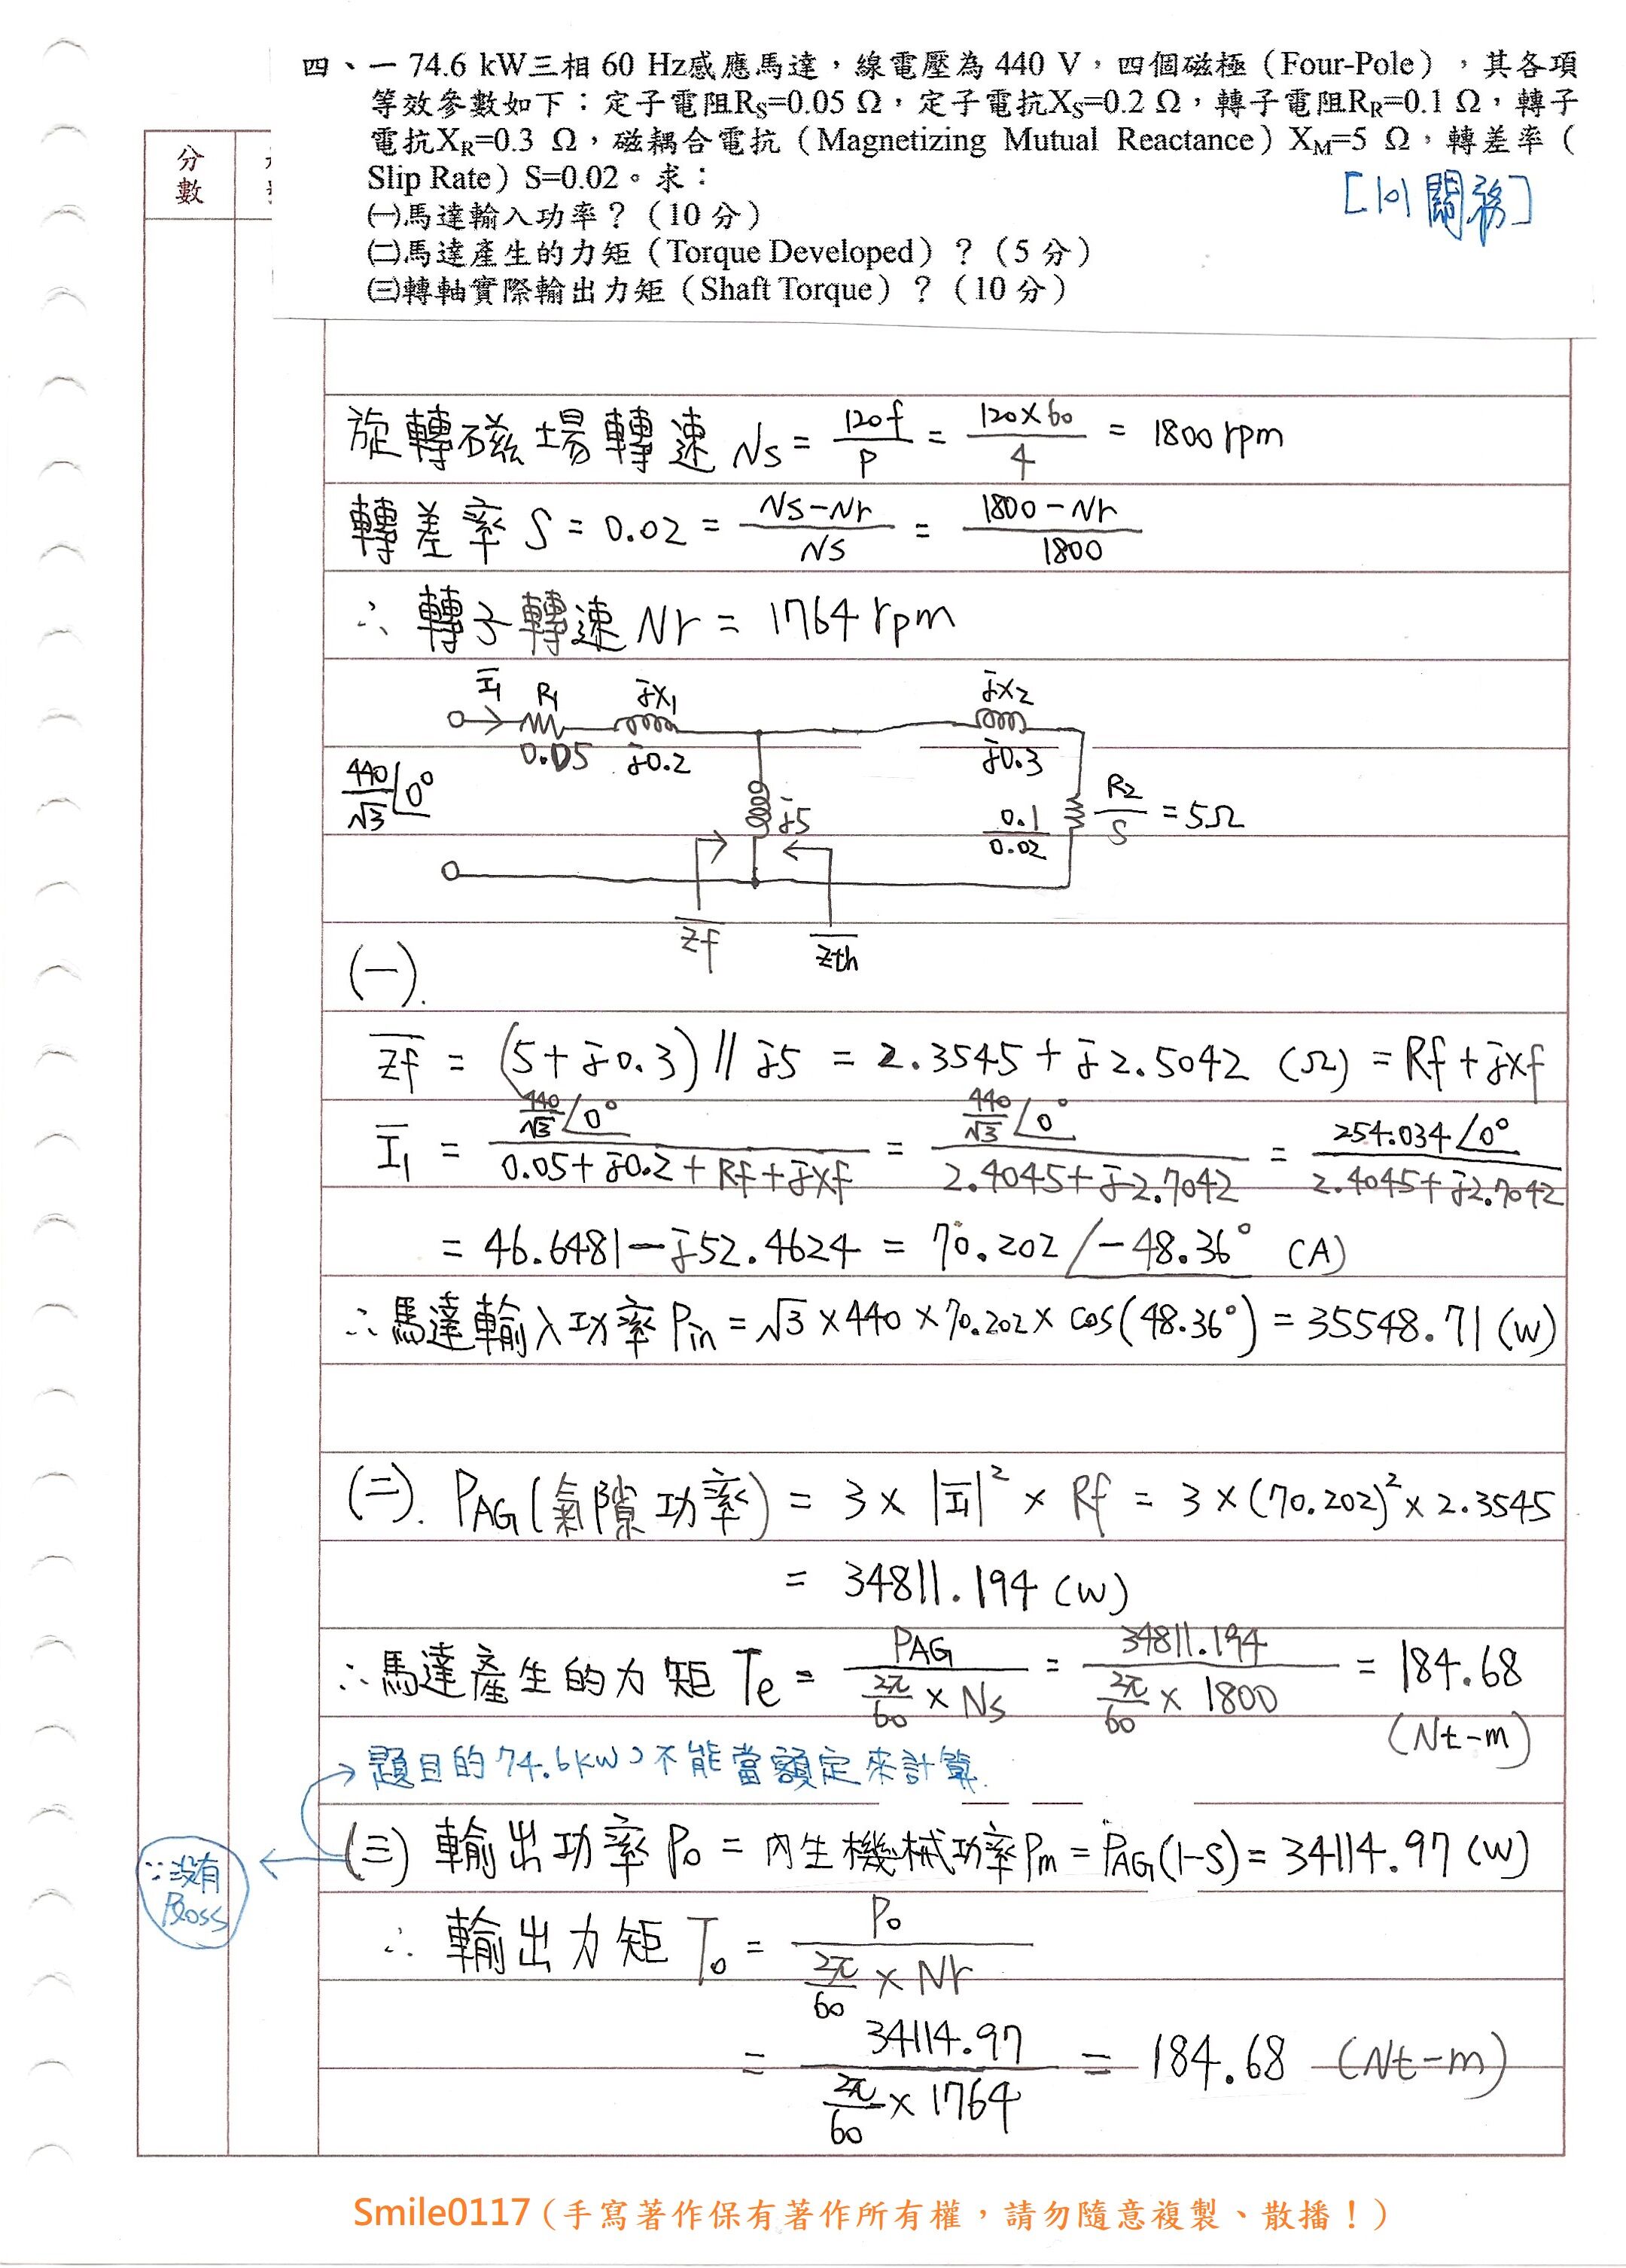 四、一 74.6 kW三相 60 Hz感應馬達，線電壓為 440 V，四個磁極（Four-Pole），其各項
等效參數如下：定子電阻RS=0.05 Ω，定子電抗XS=0.2 Ω，轉子電阻RR=0.1 Ω，轉子
電抗XR=0.3 Ω，磁耦合電抗（Magnetizing Mutual Reactance）XM=5 Ω，轉差率（
Slip Rate）S=0.02。求：
㈠馬達輸入功率？（10 分）
㈡馬達產生的力矩（Torque Developed）？（5 分）
㈢轉軸實際輸出力矩（Shaft Torque）？（10 分）
[101 關務]
分
數
旋轉磁場轉速 Ns = 120f/P = 120×60/4 = 1800 rpm
轉差率 S = 0.02 = Ns-Nr/Ns = 1800-Nr/1800
∴ 轉子轉速 Nr = 1764 rpm
I1 R1 jX1 jX2
0.05 j0.2 j0.3
440/√3∠0° j5 0.1/0.02 R2/S = 5Ω
Zf Zth
(一).
Zf = (5+j0.3) // j5 = 2.3545 + j2.5042 (Ω) = Rf + jXf
I1 = 440/√3∠0° / 0.05+j0.2+Rf+jXf = 440/√3∠0° / 2.4045+j2.7042 = 254.034∠0° / 2.4045+j2.7042
= 46.6481 - j52.4624 = 70.202∠-48.36° (A)
∴ 馬達輸入功率 Pin = √3×440×70.202×cos(48.36°) = 35548.71 (W)
(二). PAG(氣隙功率) = 3 × |I1|² × Rf = 3×(70.202)²×2.3545
= 34811.194 (W)
∴ 馬達產生的力矩 Te = PAG / 2π/60 × Ns = 34811.194 / 2π/60 × 1800 = 184.68
(Nt-m)
題目的74.6kW不能當額定來計算.
(三) 輸出功率 Po = 內生機械功率 Pm = PAG(1-S) = 34114.97 (W)
∵沒有
Ploss
∴ 輸出力矩 To = Po / 2π/60 × Nr
= 34114.97 / 2π/60 × 1764 = 184.68 (Nt-m)
Smile0117（手寫著作保有著作所有權，請勿隨意複製、散播！）